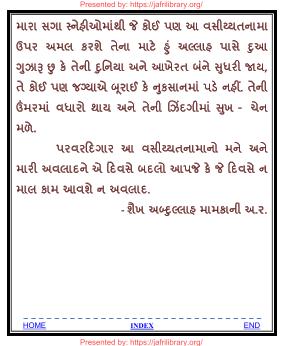 Presented by: https://jafrilibrary.org/
મારા સગા સ્નેહીઓમાંથી જે કોઈ પણ આ વસીય્યતનામા
ઉપર અમલ કરશે તેના માટે હું અલ્લાહ પાસે દુઆ
ગુઝારૂ છુ કે તેની દુનિયા અને આખેરત બંને સુધરી જાય,
તે કોઈ પણ જગ્યાએ બૂરાઈ કે નુકસાનમાં પડે નહીં. તેની
ઉંમરમાં વધારો થાય અને તેની ઝિંદગીમાં સુખ - ચેન
મળે.
પરવરદિગાર આ વસીય્યતનામાનો મને અને
મારી અવલાદને એ દિવસે બદલો આપજે કે જે દિવસે ન
માલ કામ આવશે ન અવલાદ.
- શૈખ અબ્દુલ્લાહ મામકાની અ.ર.
HOME INDEX END
Presented by: https://jafrilibrary.org/